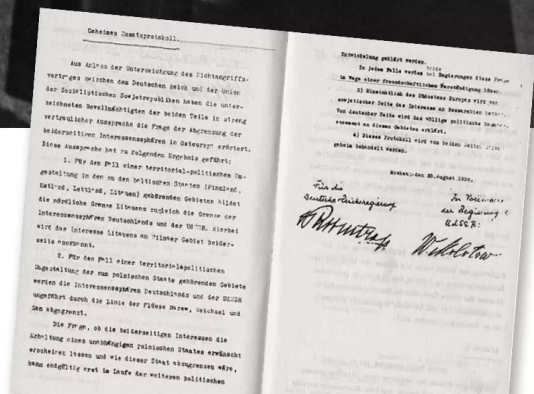 Geheimes Zusatzprotokoll.
Aus Anlass der Unterzeichnung des Nichtangriffs-
vertrages zwischen dem Deutschen Reich und der Union
der Sozialistischen Sowjetrepubliken haben die unter-
zeichneten Bevollmächtigten der beiden Teile in streng
vertraulicher Aussprache die Frage der Abgrenzung der
beiderseitigen Interessensphären in Osteuropa erörtert.
Diese Aussprache hat zu folgendem Ergebnis geführt:
1. Für den Fall einer territorial-politischen Um-
gestaltung in den zu den baltischen Staaten (Finnland,
Estland, Lettland, Litauen) gehörenden Gebieten bildet
die nördliche Grenze Litauens zugleich die Grenze der
Interessensphären Deutschlands und der UdSSR. Hierbei
wird das Interesse Litauens am Wilnaer Gebiet beider-
seits anerkannt.
2. Für den Fall einer territorialpolitischen
Umgestaltung der zum polnischen Staate gehörenden Gebiete
werden die Interessensphären Deutschlands und der UdSSR
ungefähr durch die Linie der Flüsse Narew, Weichsel und
San abgegrenzt.
Die Frage, ob die beiderseitigen Interessen die
Erhaltung eines unabhängigen polnischen Staates erwünscht
erscheinen lassen und wie dieser Staat abzugrenzen wäre,
kann endgültig erst im Laufe der weiteren politischen
Entwickelung geklärt werden.
In jedem Falle werden beide Regierungen diese Frage
im Wege einer freundschaftlichen Verständigung lösen.
3) Hinsichtlich des Südostens Europas wird von
sowjetischer Seite das Interesse an Bessarabien
Von deutscher Seite wird das völlige politische
an diesen Gebieten erklärt.
4) Dieses Protokoll wird von beiden Seiten
geheim behandelt werden.
Moskau, den 23. August 1939.
Für die
Deutsche Reichsregierung
In Vollmacht
der Regierung
UdSSR: